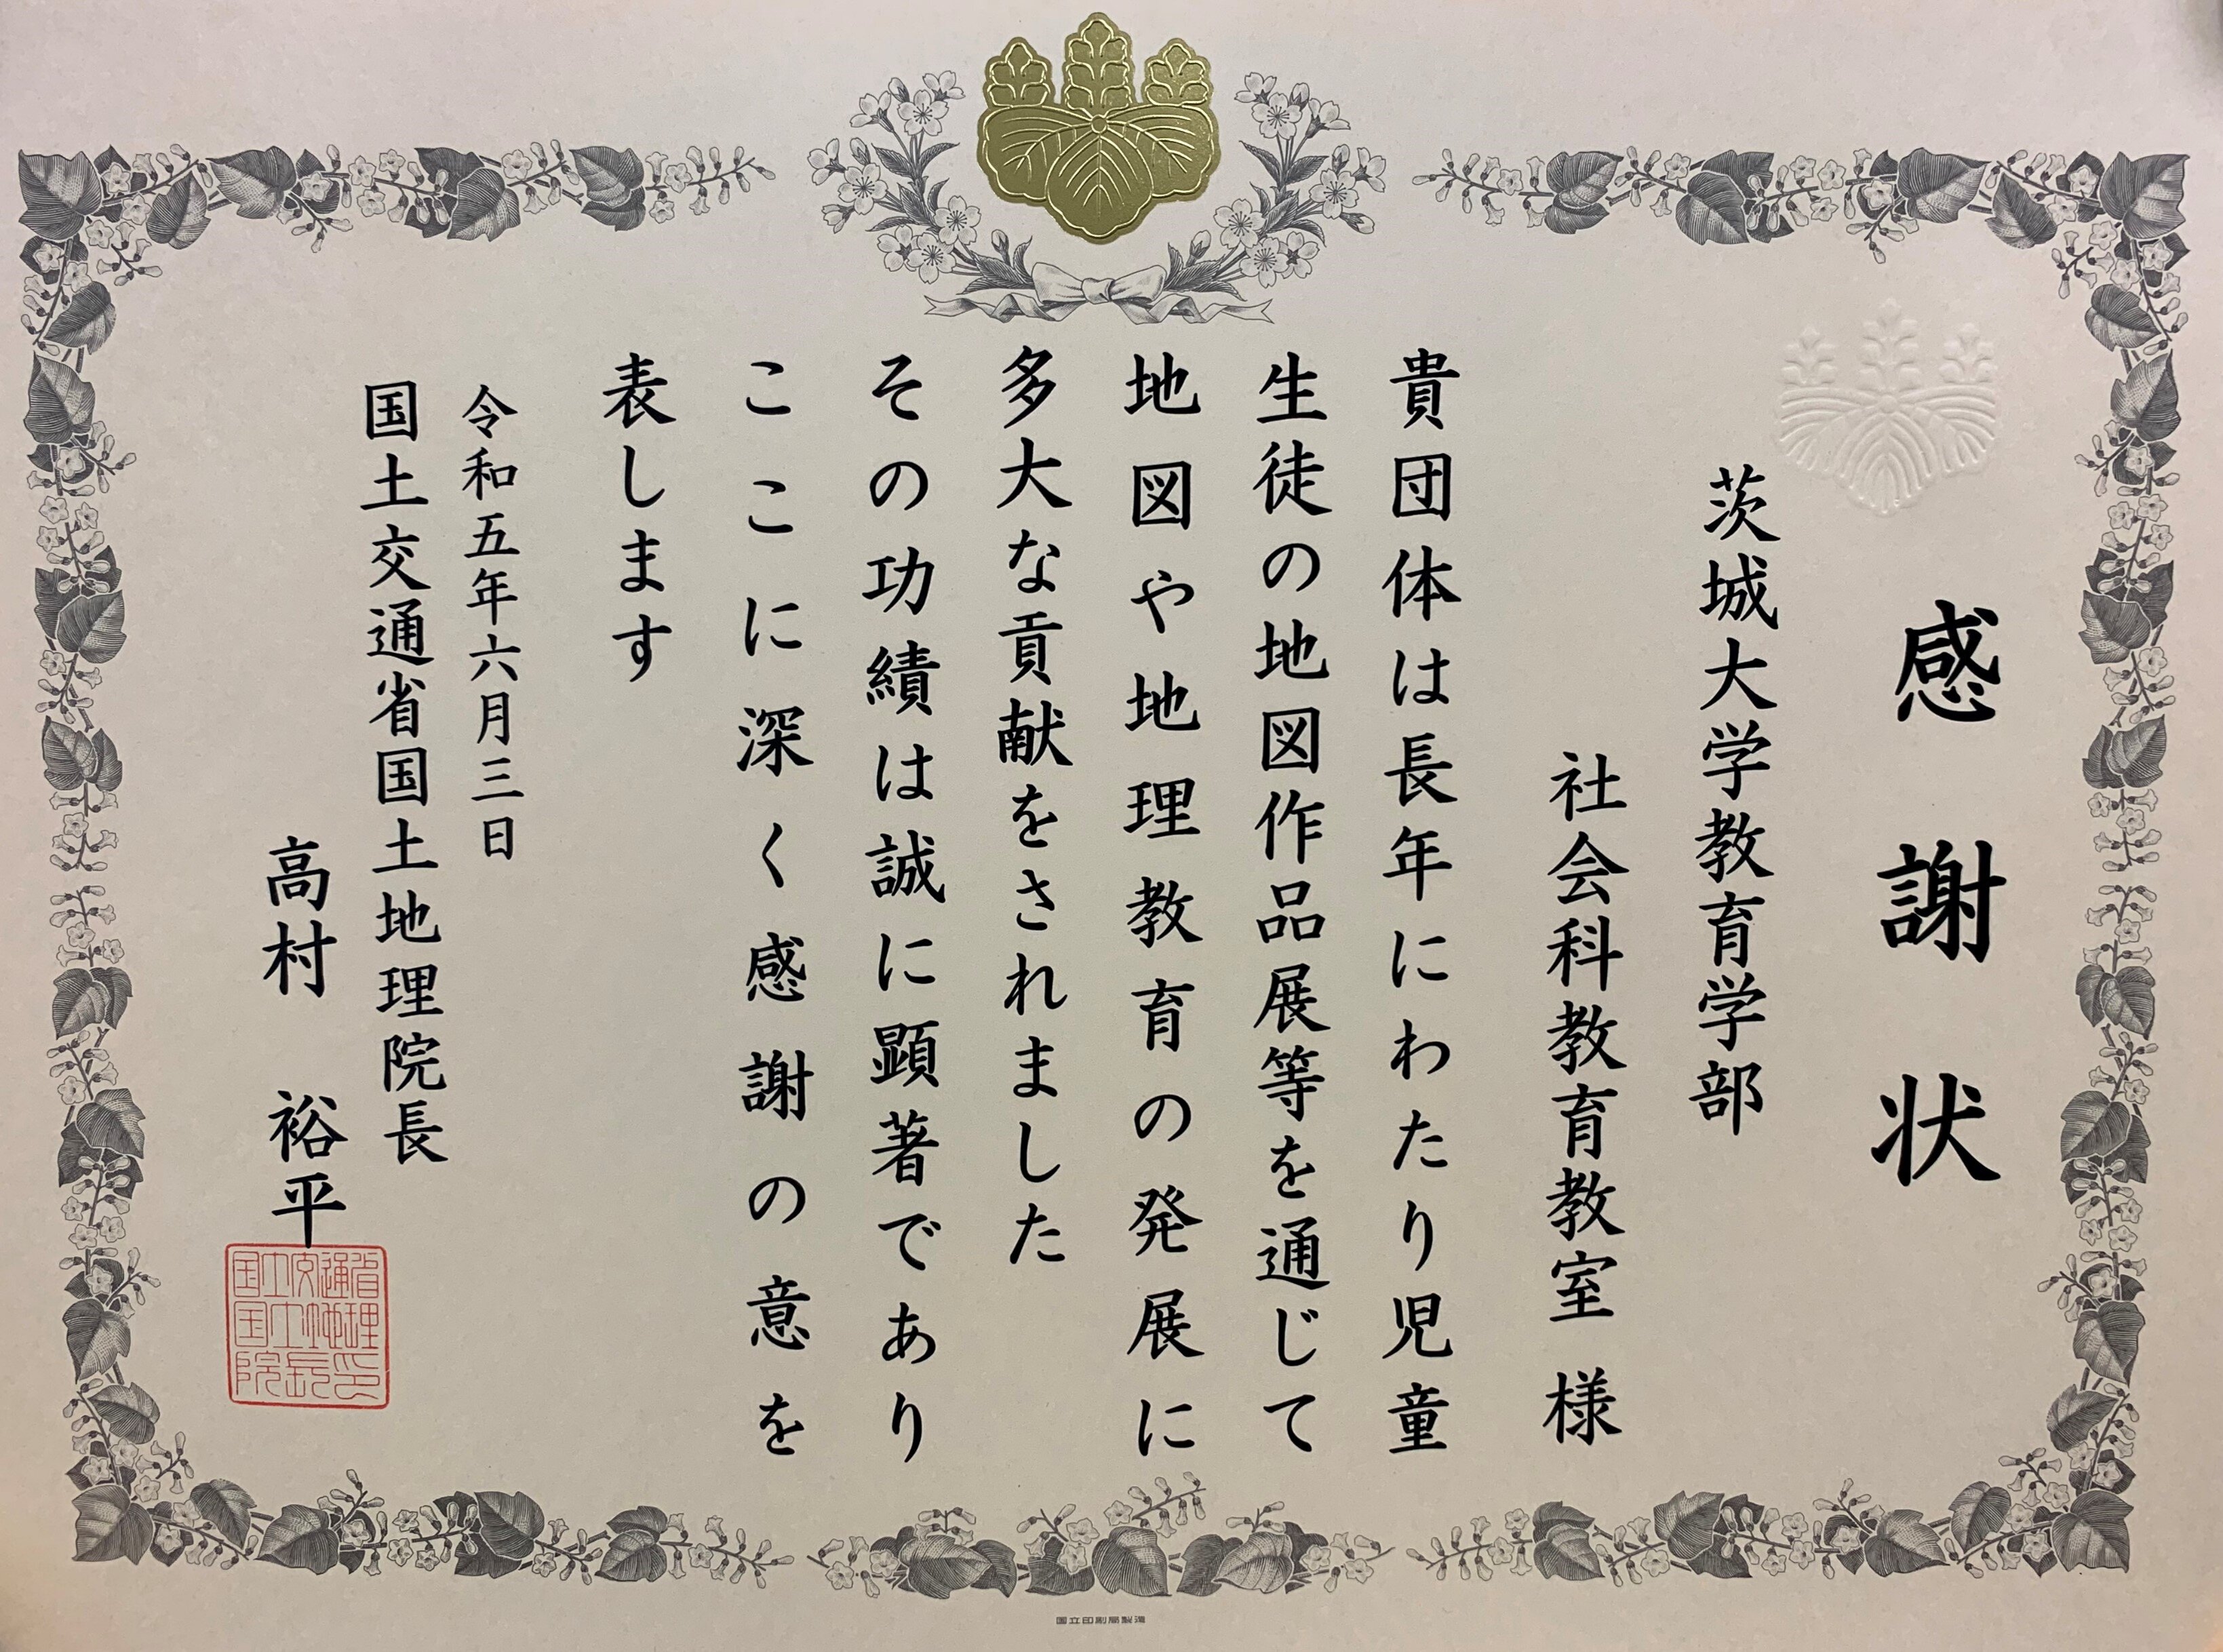 感謝状
茨城大学教育学部
社会科教育教室 様
貴団体は長年にわたり児童
生徒の地図作品展等を通じて
地図や地理教育の発展に
多大な貢献をされました
その功績は誠に顕著であり
ここに深く感謝の意を
表します
令和五年六月三日
国土交通省国土地理院長
高村 裕平
国土交通省
国土地理
院長印
国立印刷局製造